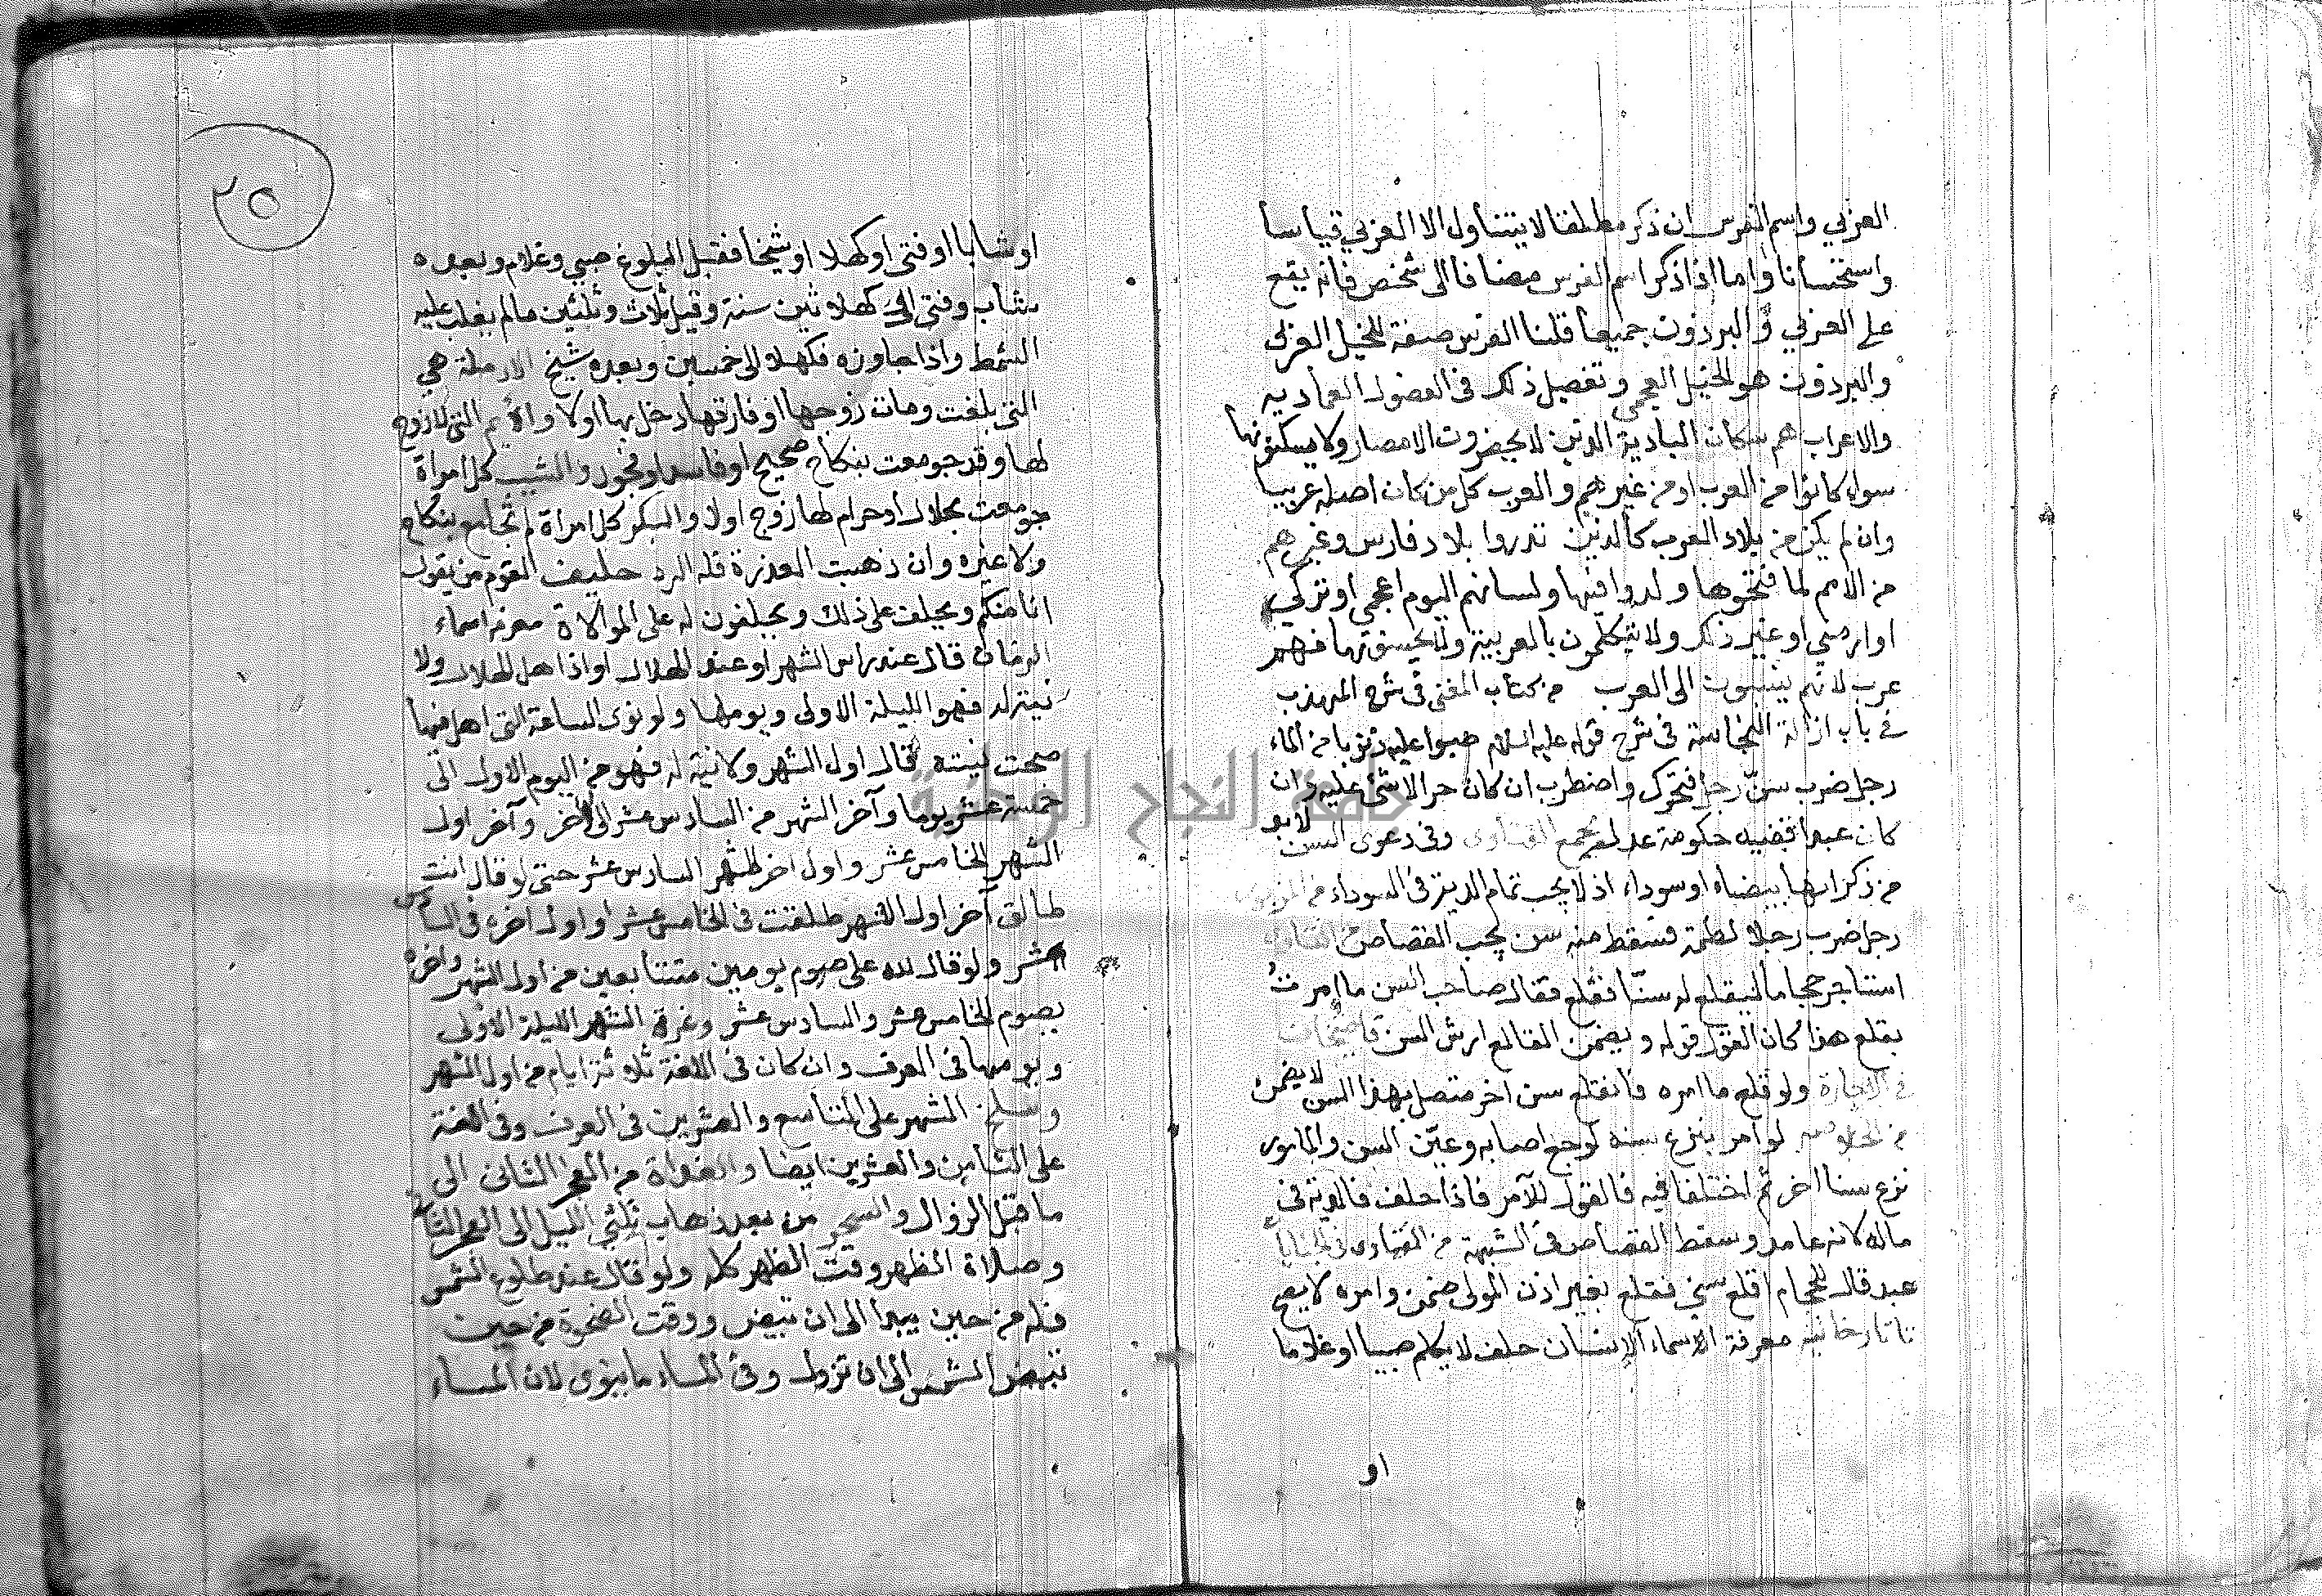 العربي واسم الفرس ان ذكر مطلقا لا يتناول الا العربي قياسا
واستحسانا واما اذا ذكر اسم الفرس مضافا الى شخص فانه يقع
على العربي والبرذون جميعا قلنا الفرس صفة للخيل العربي
والبرذون هو الخيل العجمي وتفصيل ذلك في الفصول العمادية
والاعراب هم سكان البادية الذين لا يحضرون الامصار ولا يسكنونها
سواء كانوا من العرب او من غيرهم والعرب كل من كان اصله عربيا
وان لم يكن من بلاد العرب كالذين بلاد فارس وغيرهم
من الامم لما فتحوها ولدوا فيها ولسانهم اليوم اعجمي او تركي
او ارمني او غير ذلك ولا يتكلمون بالعربية ولا يحسنونها فهم
عرب لانهم ينسبون الى العرب من كتاب المغني في شرح المهذب
في باب ازالة النجاسة في شرح قوله عليه السلام صبوا عليه ذنوبا من الماء
رجل ضرب سن رجل فتحرك واضطرب ان كان حرا لا شئ عليه وان
كان عبدا ففيه حكومة عدل مجمع الفتاوى وفي دعوى السن لا بد
من ذكر انها بيضاء او سوداء اذ لا يجب تمام الدية في السوداء من
رجل ضرب رجلا لطمة فسقط منه سن يجب القصاص من
استاجر حجاما ليقلع له سنا فقلع فقال صاحب السن ما امرت
بقلع هذا كان القول قوله ويضمن القالع ارش السن
في الاجارة ولو قلع ما امره فانقلع سن اخر متصل بهذا السن لا يضمن
من الخلاصة لو امر بنزع سنه لوجع اصابه وعين السن والمامور
نزع سنا اخر ثم اختلفا فيه فالقول للآمر فاذا حلف فالدية في
ماله لانه عامد وسقط القصاص في الشبهة من الفتاوى
عبد قال للحجام اقلع سني فقلع بغير اذن المولى ضمن وامره لا يصح
تاتارخانيه معرفة الاسماء الانسان حلف لا يكلم صبيا او غلاما
او
٢٥
او شابا او فتى او كهلا او شيخا فقبل البلوغ صبي وغلام وبعده
شاب وفتى الى كهلا ثين سنة وقيل ثلاث وثلثين ما لم يغلب عليه
الشمط واذا جاوزه فكهلا الى خمسين وبعده شيخ الارملة هي
التي بلغت ومات زوجها او فارقها دخل بها اولا والايم التي لا زوج
لها وقد جومعت بنكاح صحيح او فاسد او فجور والثيب كل امراة
جومعت بحلال او حرام لها زوج اولا والبكر كل امراة لم تجامع بنكاح
ولا غيره وان ذهبت العذرة فله الرد حليف القوم من يقول
انا منكم ويحلف على ذلك ويحلفون له على الموالاة معرفة اسماء
الزمان قال عند راس الشهر او عند الهلال او اذا هل الهلال ولا
نية له فهو الليلة الاولى ويومها ولو نوى الساعة التي اهل فيها
صحت نيته قال اول الشهر ولا نية له فهو من اليوم الاول الى
خمسة عشر يوما وآخر الشهر من السادس عشر الى الاخر وآخر اول
الشهر الخامس عشر واول اخر الشهر السادس عشر حتى لو قال انت
طالق آخر اول الشهر طلقت في الخامس عشر او اول اخره في السادس
عشر ولو قال لله على صوم يومين متتابعين من اول الشهر واخره
يصوم الخامس عشر والسادس عشر وغرة الشهر الليلة الاولى
ويومها في العرف وان كان في اللغة ثلاثة ايام من اول الشهر
وسلخ الشهر على التاسع والعشرين في العرف وفي اللغة
على الثامن والعشرين ايضا والغداة من الفجر الثاني الى
ما قبل الزوال والسحور من بعد ذهاب ثلثي الليل الى الفجر الثاني
وصلاة الظهر وقت الظهر كله ولو قال عند طلوع الشمس
فله من حين يبدا الى ان تبيض ووقت الضحوة من حين
تبيض الشمس الى ان تزول وفي المساء ما ينوى لان المساء